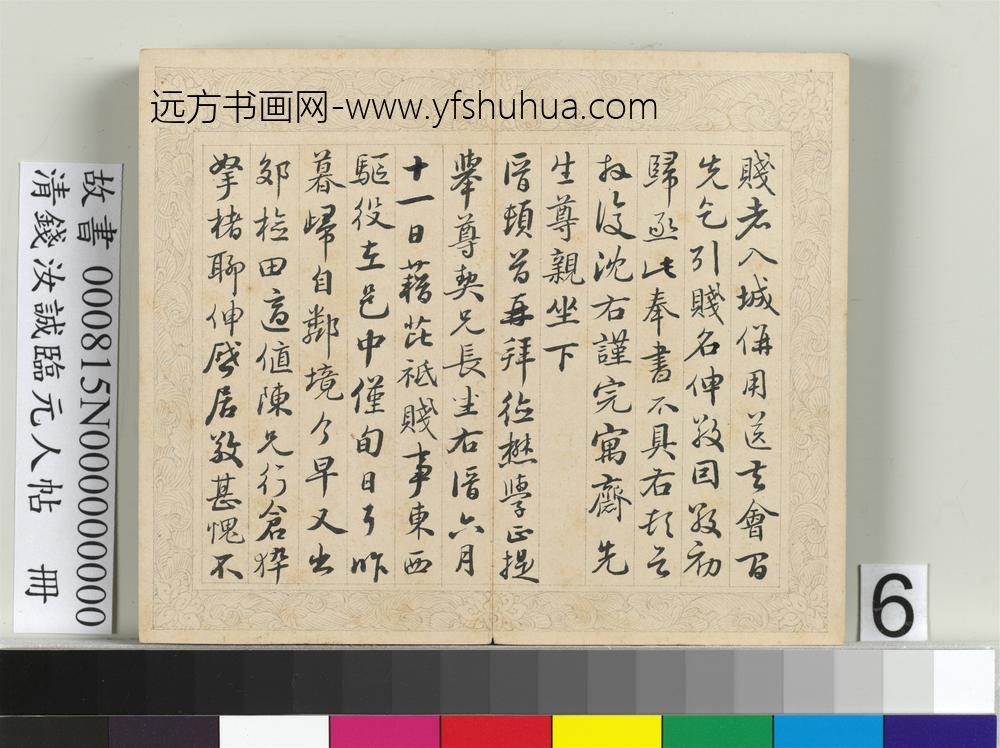 远方书画网-www.yfshuhua.com
賤老入城併用送去會百
先乞引賤名伸敬因敬初
歸亟此奉書不具右頓首
拜復沈右謹完寓齋先
生尊親坐下
晉頓首再拜德懋學正提
舉尊契兄長坐右晉六月
十一日藉芘祗賤事東西
驅役在邑中僅旬日了昨
暮歸自鄰境今早又出
郊檢田適值陳兄行倉猝
拏楮聊伸啓居敬甚愧不
故書 000815N000000000
清錢汝誠臨元人帖 冊
6